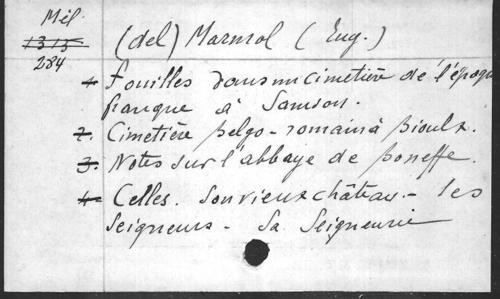 Mél.
1315
284
(del) Marmol (Eug.)
1. Fouilles dans un cimetière de l'époque
franque à Samson.
2. Cimetière belgo-romain à Bioulx.
3. Notes sur l'abbaye de Boneffe.
4. Celles. Son vieux château - les
Seigneurs - Sa Seigneurie